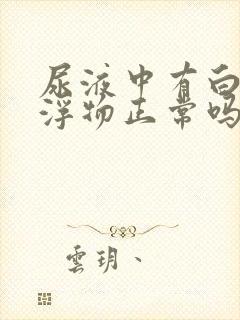 尿液中有白
浮物正常吗
雲玥、